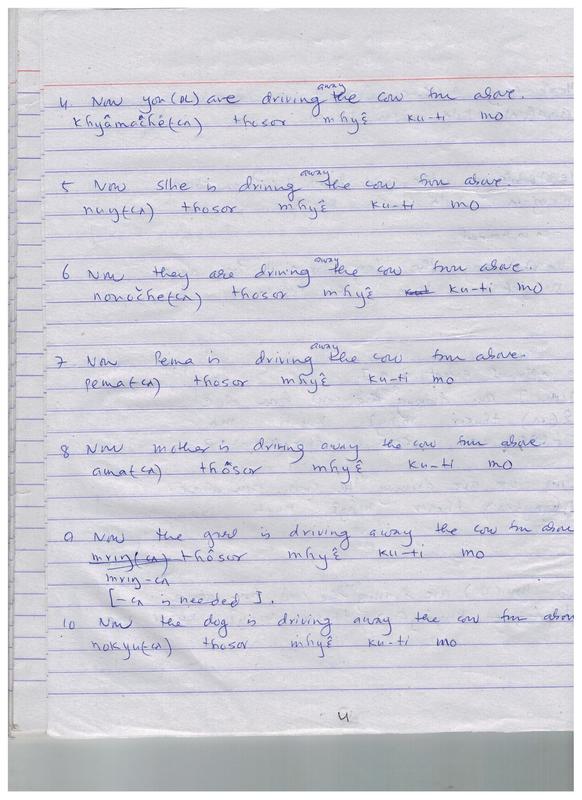 4. Now you (DL) are driving away the cow frm above.
khyâmačhé(-cʌ) thosor mhyɛ̂ ku-ti mo
5 Now s/he is driving away the cow frm above.
nuŋ(-cʌ) thosor mhyɛ̂ ku-ti mo
6 Now they are driving away the cow frm above.
nonočhe(-cʌ) thosor mhyɛ̂ ku-ti mo
7 Now Pema is driving away the cow frm above.
pema(-cʌ) thosor mhyɛ̂ ku-ti mo
8 Now mother is driving away the cow frm above.
ama(-cʌ) thôsor mhyɛ̂ ku-ti mo
9 Now the girl is driving away the cow frm above
mriŋ(-cʌ) thôsor mhyɛ̂ ku-ti mo
mriŋ-cʌ
[-cʌ is needed].
10 Now the dog is driving away the cow frm above
nokyu(-cʌ) thosor mhyɛ̂ ku-ti mo
4